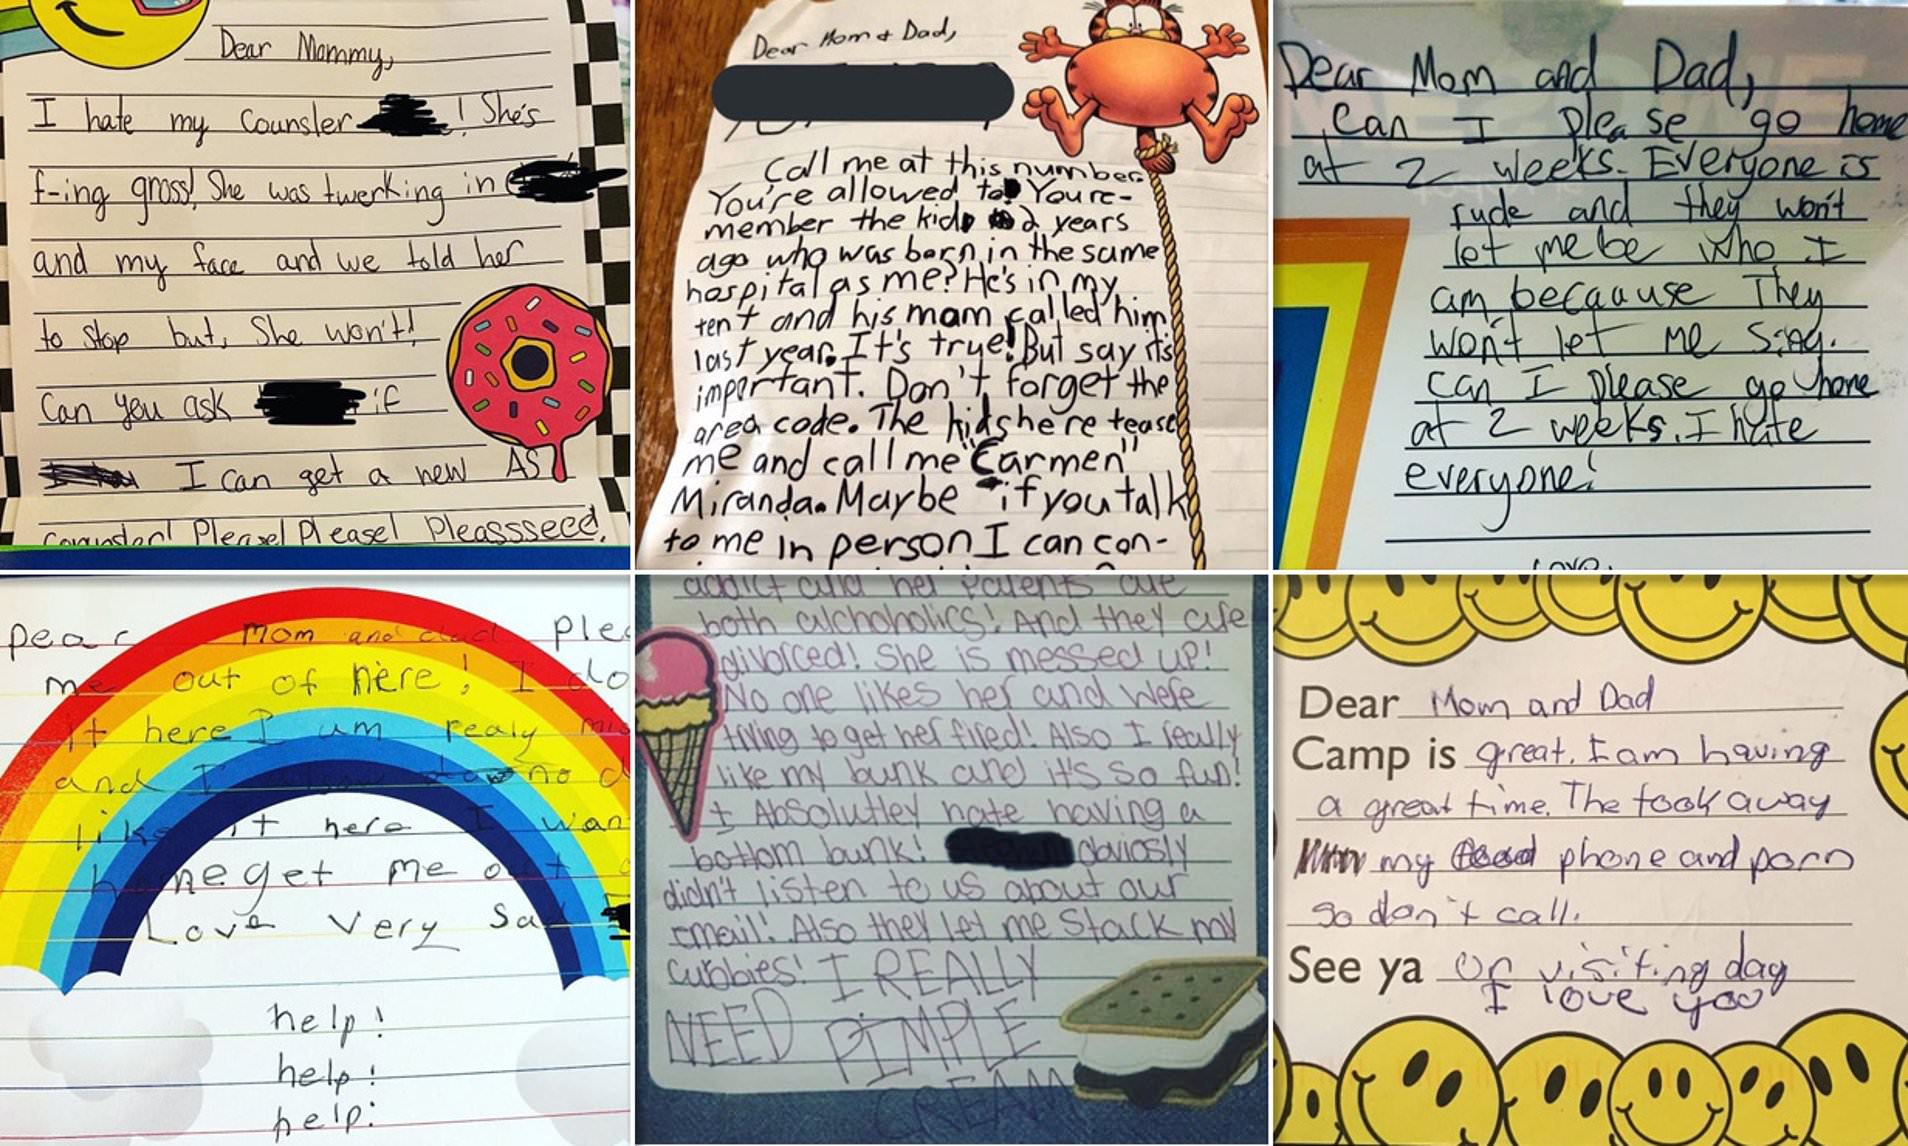 Dear Mommy,
I hate my Counsler ! She's
f-ing gross! She was twerking in
and my face and we told her
to stop but, She won't!
Can you ask if
I can get a new AS
Pleasssseee,
Dear Mom & Dad,
Call me at this number.
You're allowed to! You re-
member the kid 2 years
ago who was born in the same
hospital as me? He's in my
tent and his mom called him
last year. It's true! But say it's
important. Don't forget the
area code. The kids here tease
me and call me "Carmen"
Miranda. Maybe if you talk
to me in person I can con-
Dear Mom and Dad,
Can I please go home
at 2 weeks. Everyone is
rude and they won't
let me be who I
am becauuse They
won't let me sing.
can I please go home
at 2 weeks. I hate
everyone!
Love,
Dear Mom and dad
me out of here! I do
it here I um realy
and I no
like it here I wan
home get me out
Love Very Sad
help!
help!
help!
addict and her parents are
both alchoholics! And they are
divorced! She is messed up!
No one likes her and were
trying to get her fired! Also I really
like my bunk and it's so fun!
I Absolutley hate having a
bottom bunk! obviosly
didn't listen to us about our
email! Also they let me Stack my
cubbies! I REALLY
NEED PIMPLE
CREAM
Dear Mom and Dad
Camp is great. I am having
a great time. The took away
my phone and porn
so don't call.
See ya on visiting day
I love you